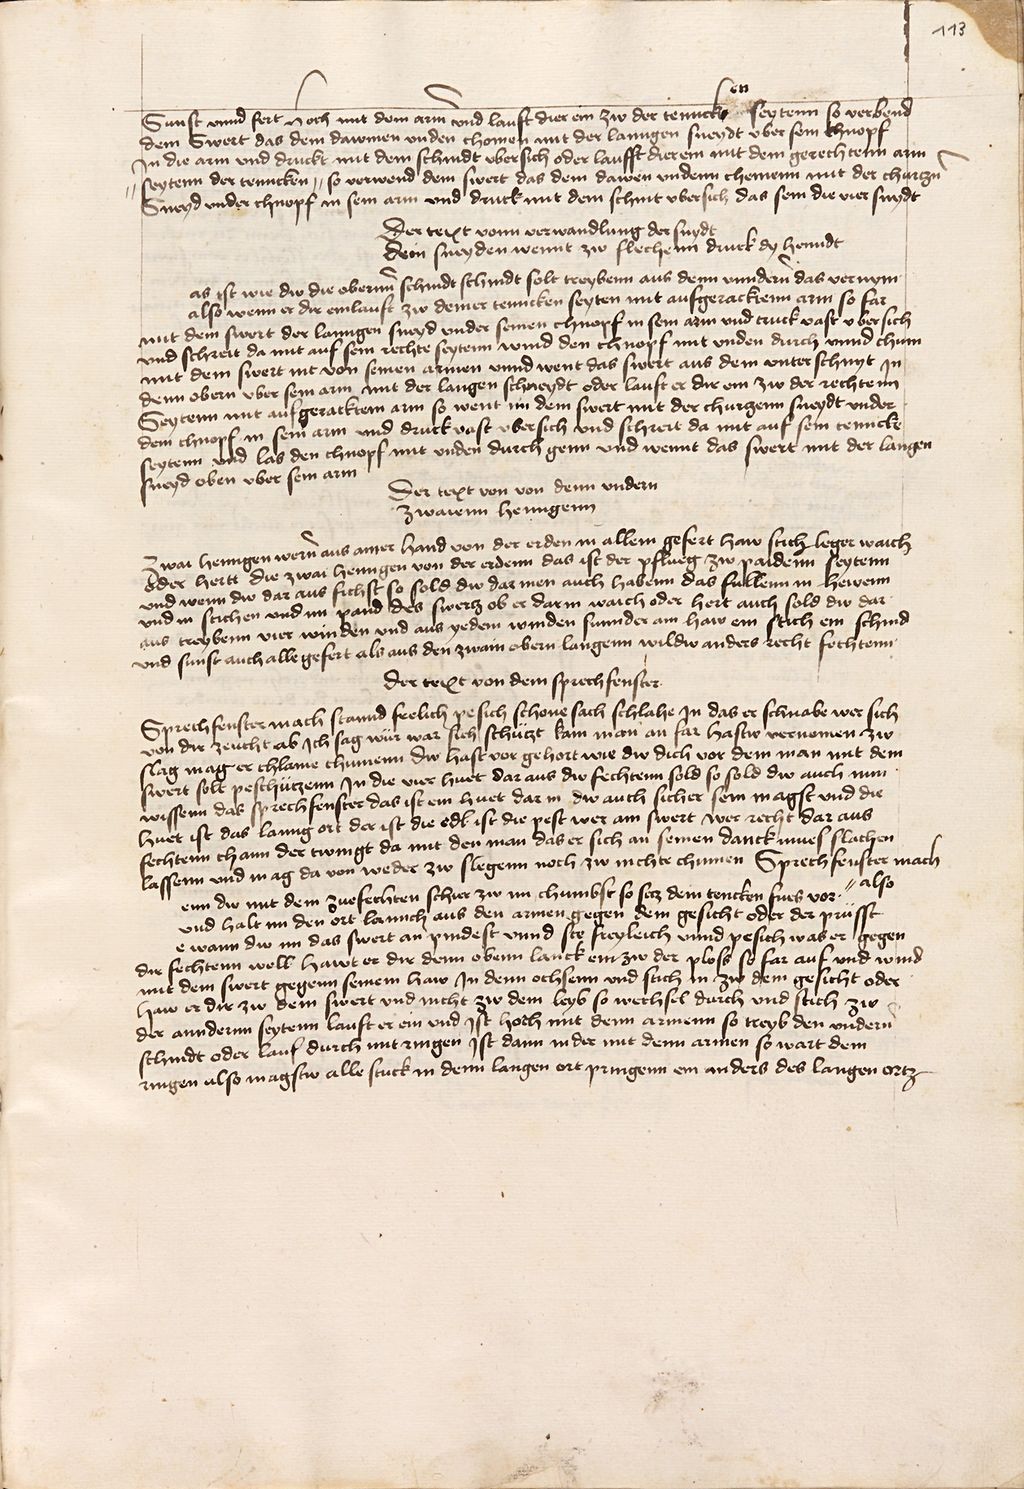 113
Sunst vnnd fert hoch mit dem arm vnd lauft dier ein zw der tenncken seytenn so verbend
dem Swert das dem dawmen vnden chomen mit der lanngen sneydt vber sein chnopf
In die arm vnd druckt mit dem schnidt vbersich oder laufft dier ein mit dem gerechtenn arm
seytenn der tenncken so verwend dem swert das dem dawen vndenn chemenn mit der churzn
Sneyd vnder chnopf in sein arm vnd druck mit dem schnit vbersich das sein die vier snydt
Der text vonn verwandlung der snydt
Dein sneyden wennt zw flechenn druck dy henndt
as ist wie dw die obernn schnidt schnidt solt treybenn aus denn vnndern das vernym
also wenn er dir einlauft zw deiner tenncken seyten mit aufgeracktenn arm so far
mit dem swert der lanngen sneyd vnder seinen chnopf in sein arm vnd truck vast vbersich
vnd schreit da mit auf sein rechte seytenn wind den chnopf mit vnden durch vnnd chum
mit dem swert nit von seinen armen vnnd went das swert aus dem vnter schnyt In
denn obern vber sein arm mit der langen schneydt oder lauft er dir ein zw der rechtenn
Seytenn mit aufgeracktem arm so went im dem swert mit der churzenn sneydt vnder
dem chnopf in sein arm vnd druck vast vbersich vnd schreit da mit auf sein tenncke
seytenn vnd las den chnopf mit vnden durch genn vnd wennt das swert mit der langen
sneyd oben vber sein arm
Der text von von denn vndern
zwaienn henngenn
Zwai henngen wern aus ainer hand von der erden in allem gefert haw stich leger waich
oder hertt die zwai henngen von der erdenn das ist der pflueg zw paidenn seytenn
vnd wenn dw dar aus fichst so sold dw dar inen auch habenn das fullenn in hewenn
vnd in stichen vnd im pand des swertz ob er darin waich oder hert auch sold dw dar
aus treybenn vier winden vnd aus yedem winden sunnder ain haw ein stich ein schnid
vnd sunst auch alle gefert als aus den zwain obern langenn wildw anders recht fechtenn
Der text von dem sprechfenster
Sprechfenster mach stannd frelich pesich schone sach schlahe In das er schnabe wer sich
von dir zeucht ab Ich sag wür war sich schützt kain man an far hastw vernomen zw
slag mag er chlaine chumenn dw hast vor gehort wie dw dich vor dem man mit dem
swert solt peschützenn In die vier huet dar aus dw fechtenn sold so sold dw auch nun
wissenn das sprechfenster das ist ein huet dar in dw auch sicher sein magst vnd die
huet ist das lanng ort der ist die edl ist die pest wer am swert wer recht dar aus
fechtenn chann der twingt da mit den man das er sich an seinen danck mues slachen
lassenn vnd mag da von weder zw slegenn noch zw nichte chumen Sprechfenster mach
enn dw mit dem zuefechten schier zw im chumbst so setz dem tencken fues vor also
vnd halt im den ort lannch aus den armen gegen dem gesicht oder der prüsst
e wann dw im das swert an pindest vnnd ste freyleich vnnd pesich was er gegen
dir fechtenn well hawt er dir denn obenn lanck ein zw der ploss so far auf vnd wind
mit dem swert gegenn seinem haw In denn ochsenn vnd stich in zw dem gesicht oder
haw er dir zw dem swert vnd nicht zw dem leyb so wechsel durch vnd stich zw
der anndernn seytenn lauft er ein vnd Ist hoch mit denn armenn so treyb den vndern
schnidt oder lauf durch mit ringen Ist dann nider mit denn armen so wart dem
ringen also magstw alle stuck in denn langen ort pringenn ein anders des langen ortz